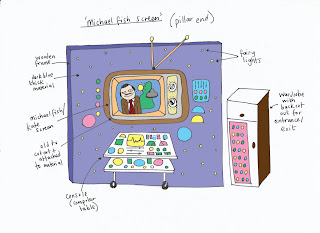 'Michael fish screen' (pillar end)
wooden
frame
dark blue
black
material
michael fish/
kate
screen
old tv
cut out +
attached
to material
console
(computer
table)
fairy
lights
Wardrobe
with
back cut
out for
entrance/
exit